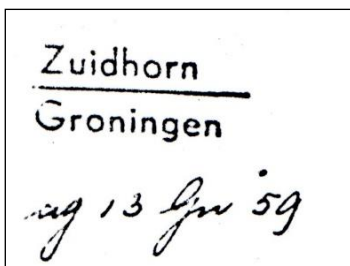 Zuidhorn
Groningen
ag 13 '59